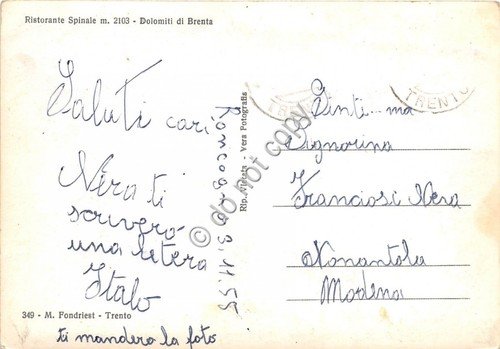 Ristorante Spinale m. 2103 - Dolomiti di Brenta
Saluti cari
Nera ti
scriverò
una letera
Italo
ti manderò la foto
349 - M. Fondriest - Trento
9.11.55
Rip. Vietata - Vera Fotografia
do not copy
TRENTO
TRENTO
Gent... ma
Signorina
Franciosi Nera
Nonantola
Modena